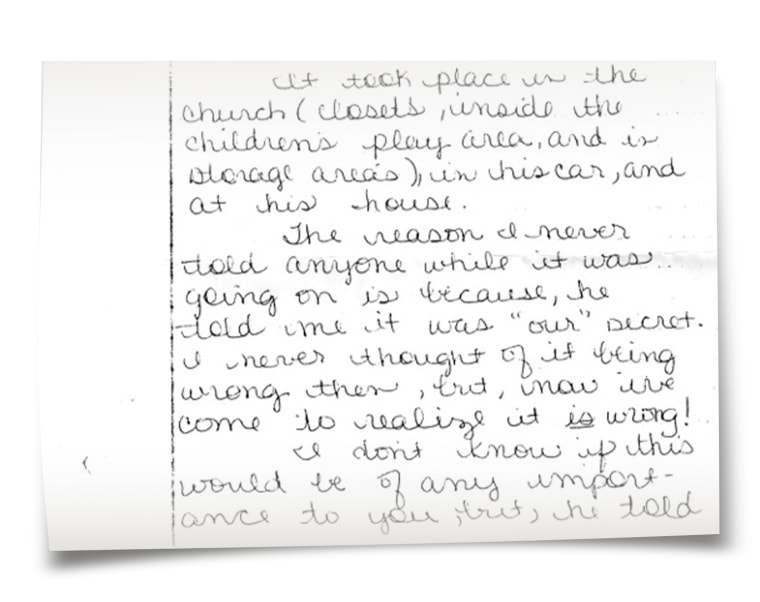 It took place in the
church (closets, inside the
children's play area, and in
storage areas), in his car, and
at his house.
The reason I never
told anyone while it was
going on is because, he
told me it was "our" secret.
I never thought of it being
wrong then, but, now I've
come to realize it is wrong!
I don't know if this
would be of any import-
ance to you, but, he told